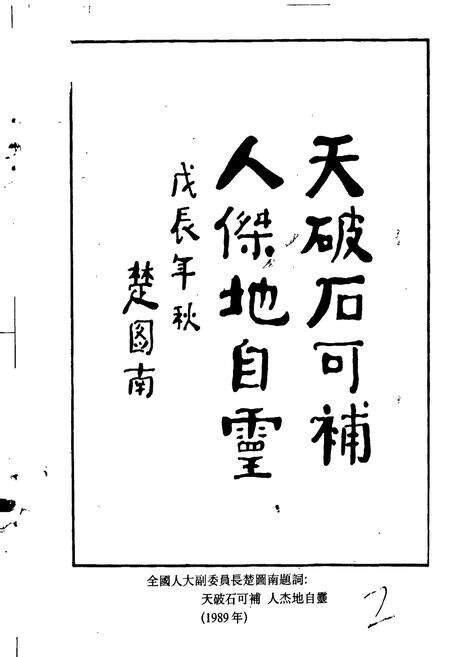 天破石可補
人傑地自靈
戊辰年秋
楚图南
全國人大副委員長楚圖南題詞:
天破石可補 人杰地自靈
(1989年)
7